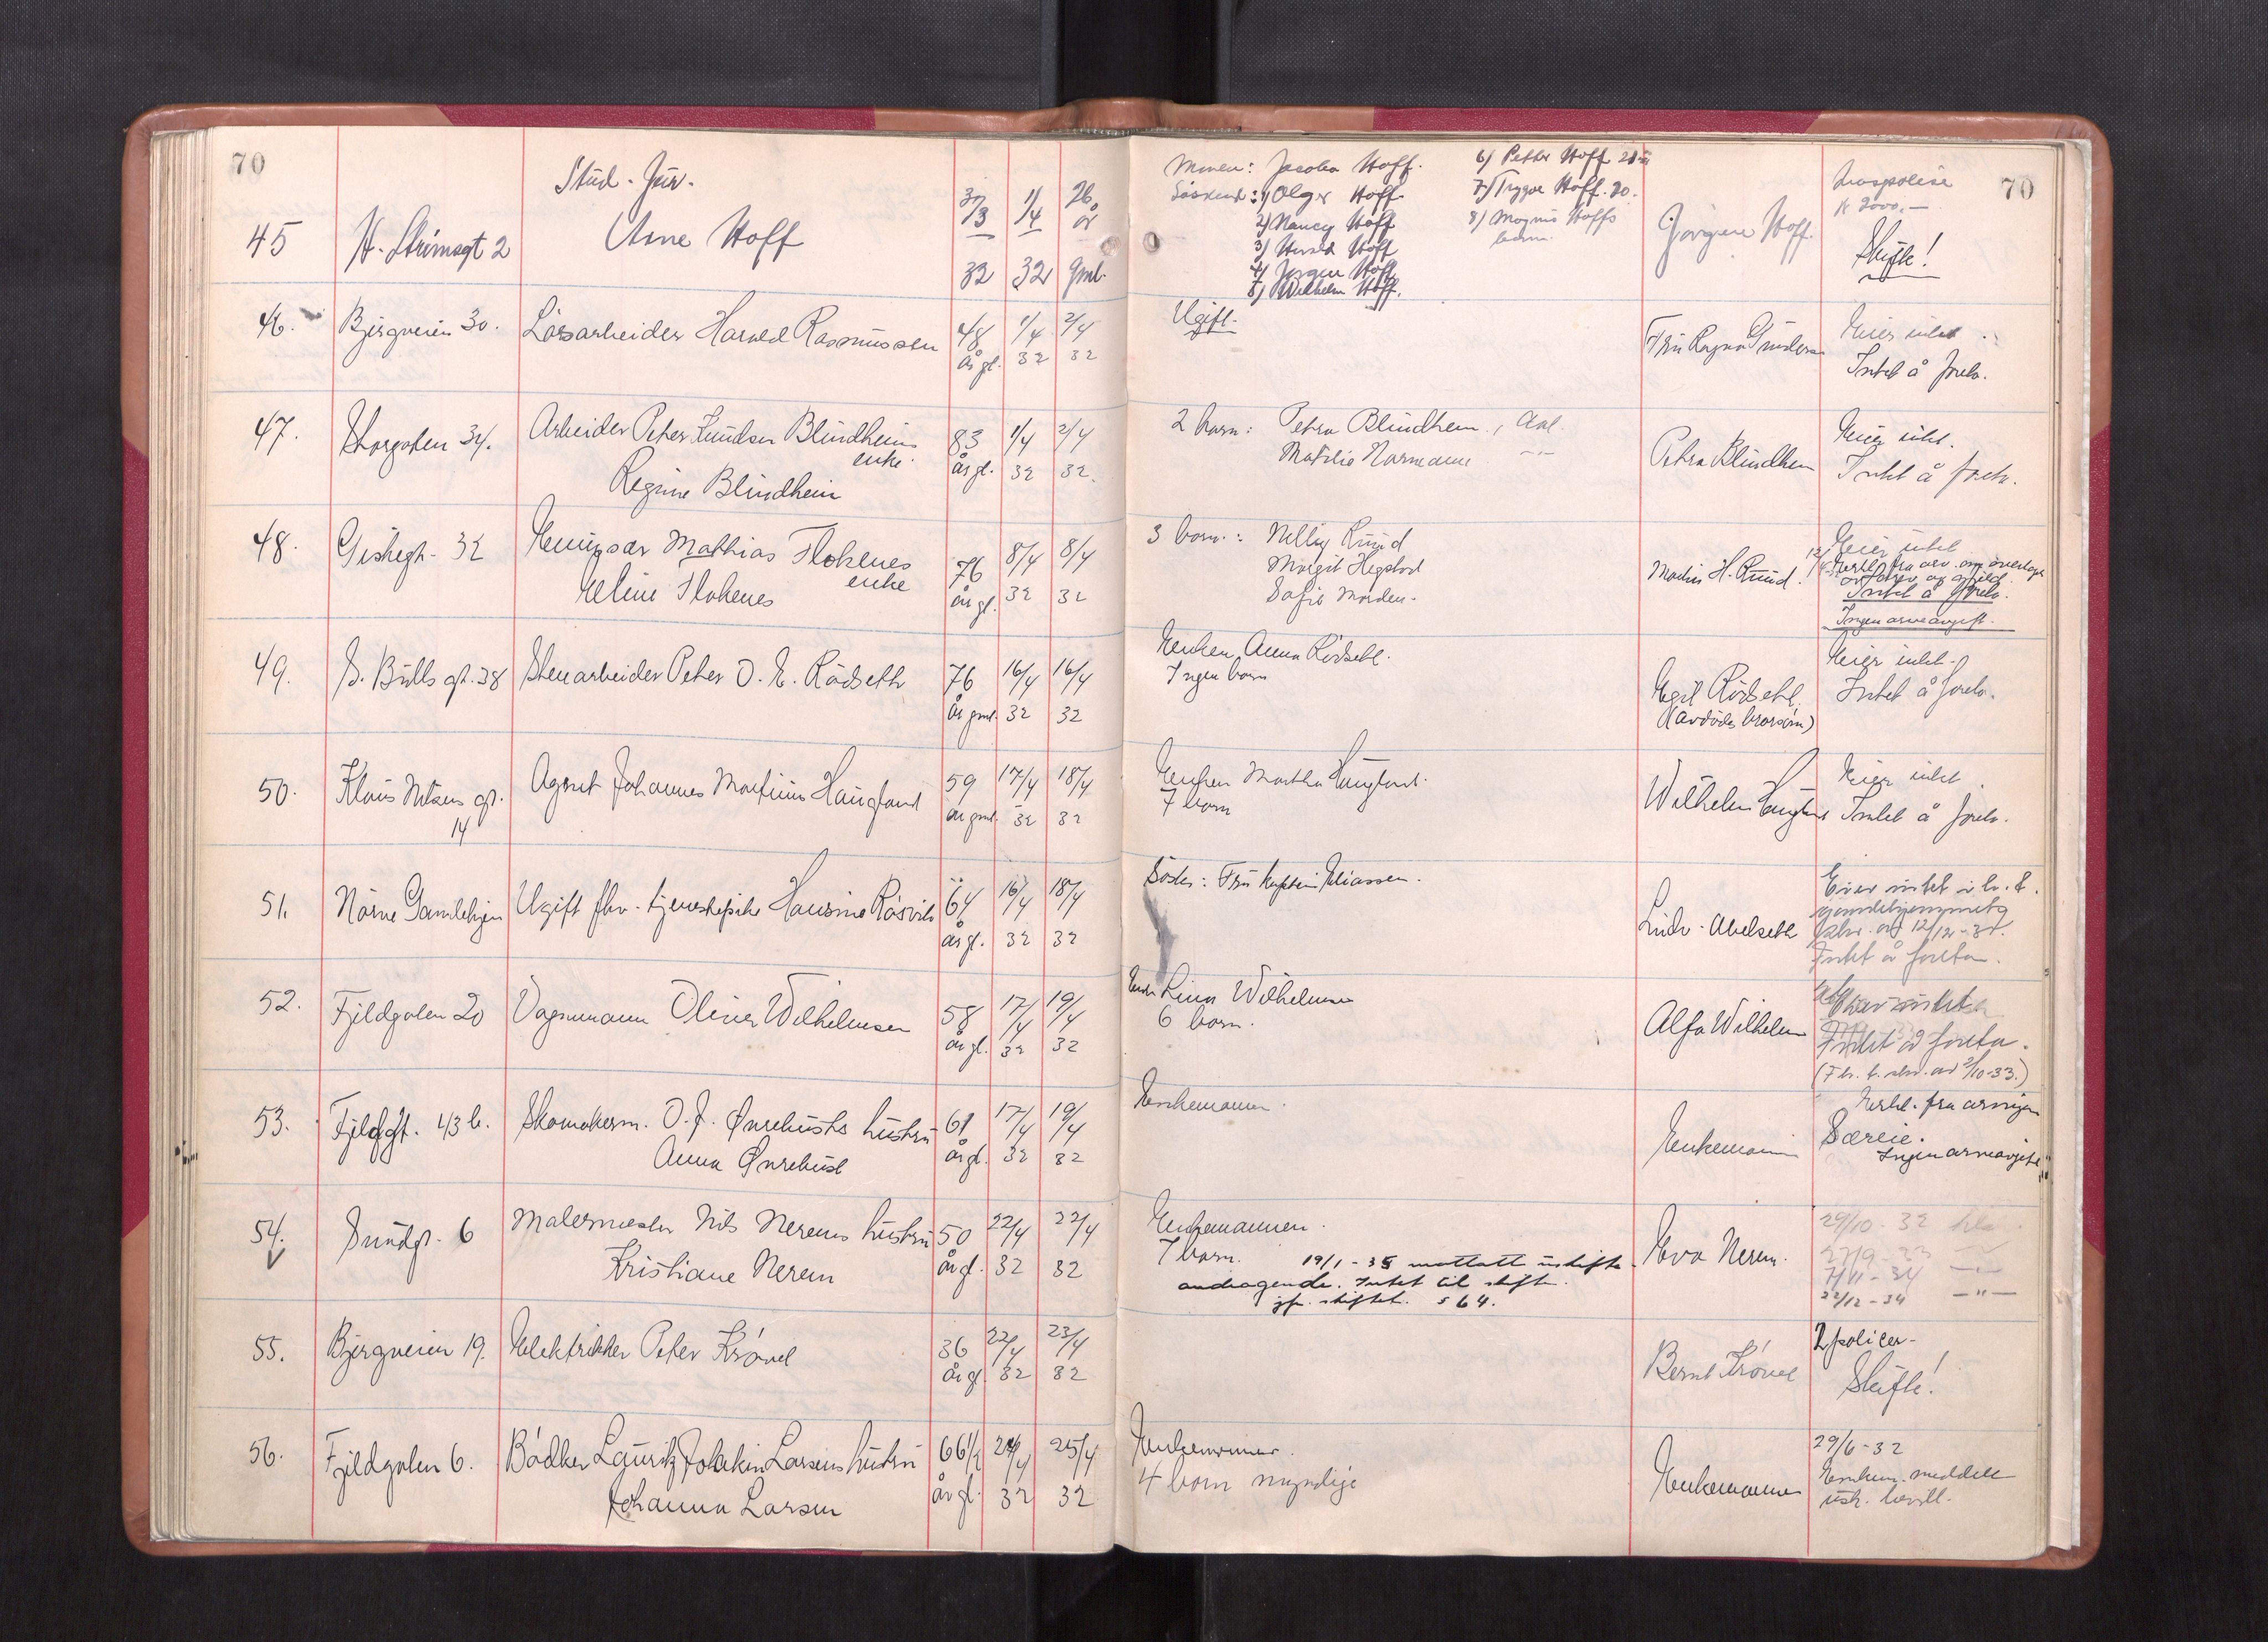 70
Stud. Jur.
45 N. Strømsgt 2 Arne Hoff 31/3 32 1/4 32 26 år gml.
46. Bjergveien 30. Løsarbeider Harald Rasmussen 48 år gl. 1/4 32 2/4 32
47. Storgaten 34. Arbeider Peter Knudsen Blindheims enke
Regine Blindheim 83 år gl. 1/4 32 2/4 32.
48. Giskegt. 32 Mathias Flokenes enke
Eline Flokenes 76 år gl. 8/4 32 8/4 32
49. S. Bulls gt. 38 Stenarbeider Peter O. E. Rødseth 76 år gml. 16/4 32 16/4 32
50. Klaus Nilsens gt. 14 Agent Johannes Martinus Haugland 59 år gml. 17/4 32 18/4 32
51. Nørve Gamlehjem Ugift fhv. tjenestepike Hansine Røsvik 64 år gl. 16/4 32 18/4 32
52. Fjeldgaten 20 Vognmann Oliver Wilhelmsen 58 år gl. 17/4 32 19/4 32
53. Fjeldgt. 43 b. Skomakerm. O. J. Ørsehusts hustru
Anna Ørsehust 61 år gl. 17/4 32 19/4 32
54. Sundgt. 6 Malermester Nils Nerems hustru
Kristiane Nerem 50 år gl. 22/4 32 22/4 32
55. Bjergveien 19. Elektrikker Peter Krøvel 36 år gl. 22/4 32 23/4 32
56. Fjeldgaten 6. Bødker Lauritz Joakim Larsens hustru
Johanna Larsen 66 1/2 år gl. 24/4 32 25/4 32
70
Moren: Jacoba Hoff.
Søskend: 1) Olger Hoff
2) Nancy Hoff
3) Harald Hoff
4) Jørgen Hoff
5) Wilhelm Hoff.
6) Petter Hoff 21 år
7) Trygve Hoff. 20.
8) Magnus Hoffs
barn.
Jørgen Hoff.
Livspolise
kr 2000.-
Skifte!
Ugift.
Fru Ragna Gundersen
Eier intet
Intet å foreta.
2 barn: Petra Blindheim, Aal.
Matilie Normann -"-
Petra Blindheim
Eier intet.
Intet å foreta.
3 barn: Nelly Ruud
Margit Hegstad
Sofie Morden.
Martin H. Ruud.
Eier intet
Erkl. fra arv. om overtagelse
av arv og gjeld.
Intet å foreta.
Ingen arveavgift.
Enken Anna Rødseth.
Ingen barn
Egil Rødseth.
(avdødes brorsøn)
Eier intet.
Intet å foreta.
Enken Martha Haugland.
7 barn
Wilhelm Haugland
Eier intet
Intet å foreta.
Søster: Fru kaptein Eliassen.
Ludv. Abelseth
Eier intet i h. t.
gamlehjemmets
skr. av 12/12-31.
Intet å foreta.
Enke Lina Wilhelmsen
6 barn.
Alfa Wilhelmsen
Eier intet
Intet å foreta.
(I h. t. skr. av 2/10-33.)
Enkemannen.
Enkemann
Erkl. fra arvingen
Særeie.
Ingen arveavgift
Enkemannen.
7 barn. 19/1-35 mottatt uskifte-
andragende. Intet til skifte.
jfr. skiftel. § 64.
Eva Nerem.
29/10-32
27/9-33 -"-
7/11-34 -"-
22/12-34 -"-
Bernt Krøvel
2 policer-
Skifte!
Enkemannen.
4 barn myndige
Enkemannen
29/6-32
Enkem. meddelt
usk. bevill.